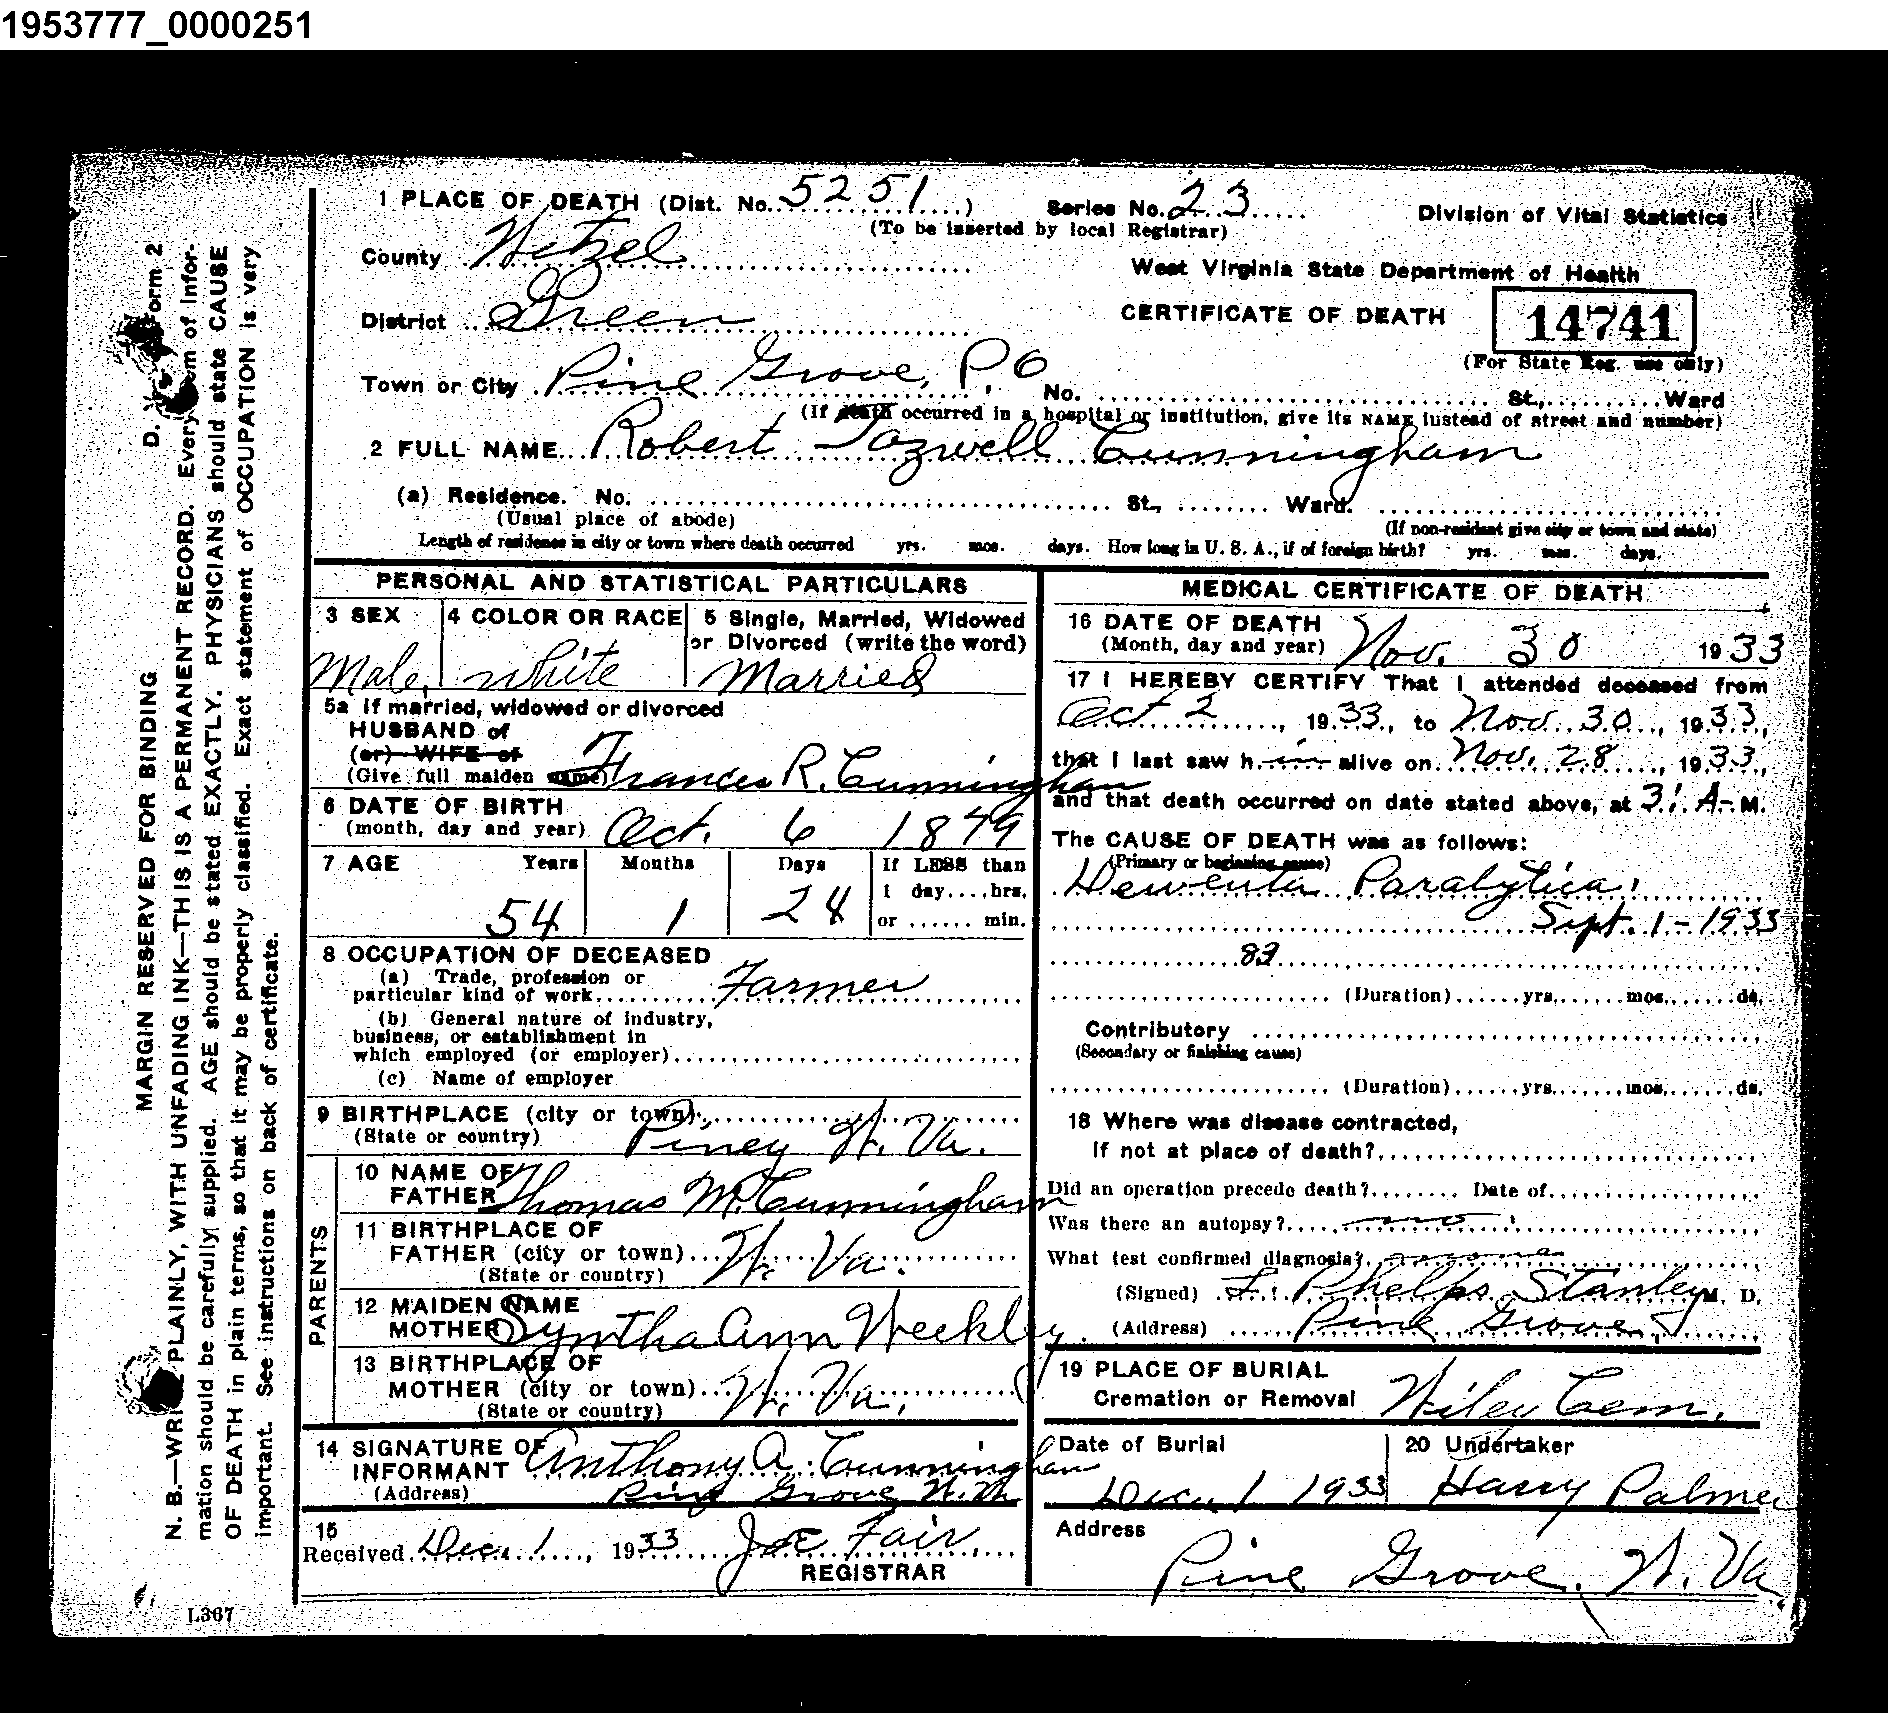 1953777_0000251
1 PLACE OF DEATH (Dist. No. 5251) Series No. 23 Division of Vital Statistics
(To be inserted by local Registrar)
County Wetzel
West Virginia State Department of Health
District Green
CERTIFICATE OF DEATH 14741
(For State Reg. use only)
Town or City Pine Grove, P.O
No. St., Ward
(If death occurred in a hospital or institution, give its NAME instead of street and number)
2 FULL NAME Robert Tazwell Cunningham
(a) Residence. No. St., Ward.
(Usual place of abode) (If non-resident give city or town and state)
Length of residence in city or town where death occurred yrs. mos. days. How long in U. S. A., if of foreign birth? yrs. mos. days.
PERSONAL AND STATISTICAL PARTICULARS
3 SEX 4 COLOR OR RACE 5 Single, Married, Widowed
or Divorced (write the word)
Male, white Married
5a If married, widowed or divorced
HUSBAND of
(or) WIFE of
(Give full maiden name) Frances R. Cunningham
6 DATE OF BIRTH
(month, day and year) Oct. 6 1879
7 AGE Years Months Days If LESS than
1 day....hrs.
54 1 24 or ...... min.
8 OCCUPATION OF DECEASED
(a) Trade, profession or
particular kind of work Farmer
(b) General nature of industry,
business, or establishment in
which employed (or employer)
(c) Name of employer
9 BIRTHPLACE (city or town)
(State or country) Piney W. Va.
PARENTS
10 NAME OF
FATHER Thomas M. Cunningham
11 BIRTHPLACE OF
FATHER (city or town) W. Va.
(State or country)
12 MAIDEN NAME
MOTHER Syntha Ann Weekley
13 BIRTHPLACE OF
MOTHER (city or town) W. Va.
(State or country)
14 SIGNATURE OF
INFORMANT Anthony A. Cunningham
(Address) Pine Grove W. Va
15
Received Dec. 1, 1933 Joe Fair
REGISTRAR
MEDICAL CERTIFICATE OF DEATH
16 DATE OF DEATH
(Month, day and year) Nov. 30 1933
17 I HEREBY CERTIFY That I attended deceased from
Oct 2, 1933, to Nov. 30, 1933,
that I last saw h im alive on Nov. 28, 1933,
and that death occurred on date stated above, at 3: A-M.
The CAUSE OF DEATH was as follows:
(Primary or beginning cause)
Paralytica
Sept. 1-1933
83
(Duration) yrs. mos. ds.
Contributory
(Secondary or finishing cause)
(Duration) yrs. mos. ds.
18 Where was disease contracted,
if not at place of death?
Did an operation precede death? Date of
Was there an autopsy? no
What test confirmed diagnosis?
(Signed) F. Phelps Stanley M. D.
(Address) Pine Grove
19 PLACE OF BURIAL
Cremation or Removal Wiley Cem.
Date of Burial 20 Undertaker
Dec. 1 1933 Harry Palmer
Address
Pine Grove, W. Va
D. Form 2
MARGIN RESERVED FOR BINDING
N. B.—WRITE PLAINLY, WITH UNFADING INK—THIS IS A PERMANENT RECORD. Every item of infor-
mation should be carefully supplied. AGE should be stated EXACTLY. PHYSICIANS should state CAUSE
OF DEATH in plain terms, so that it may be properly classified. Exact statement of OCCUPATION is very
important. See instructions on back of certificate.
L367